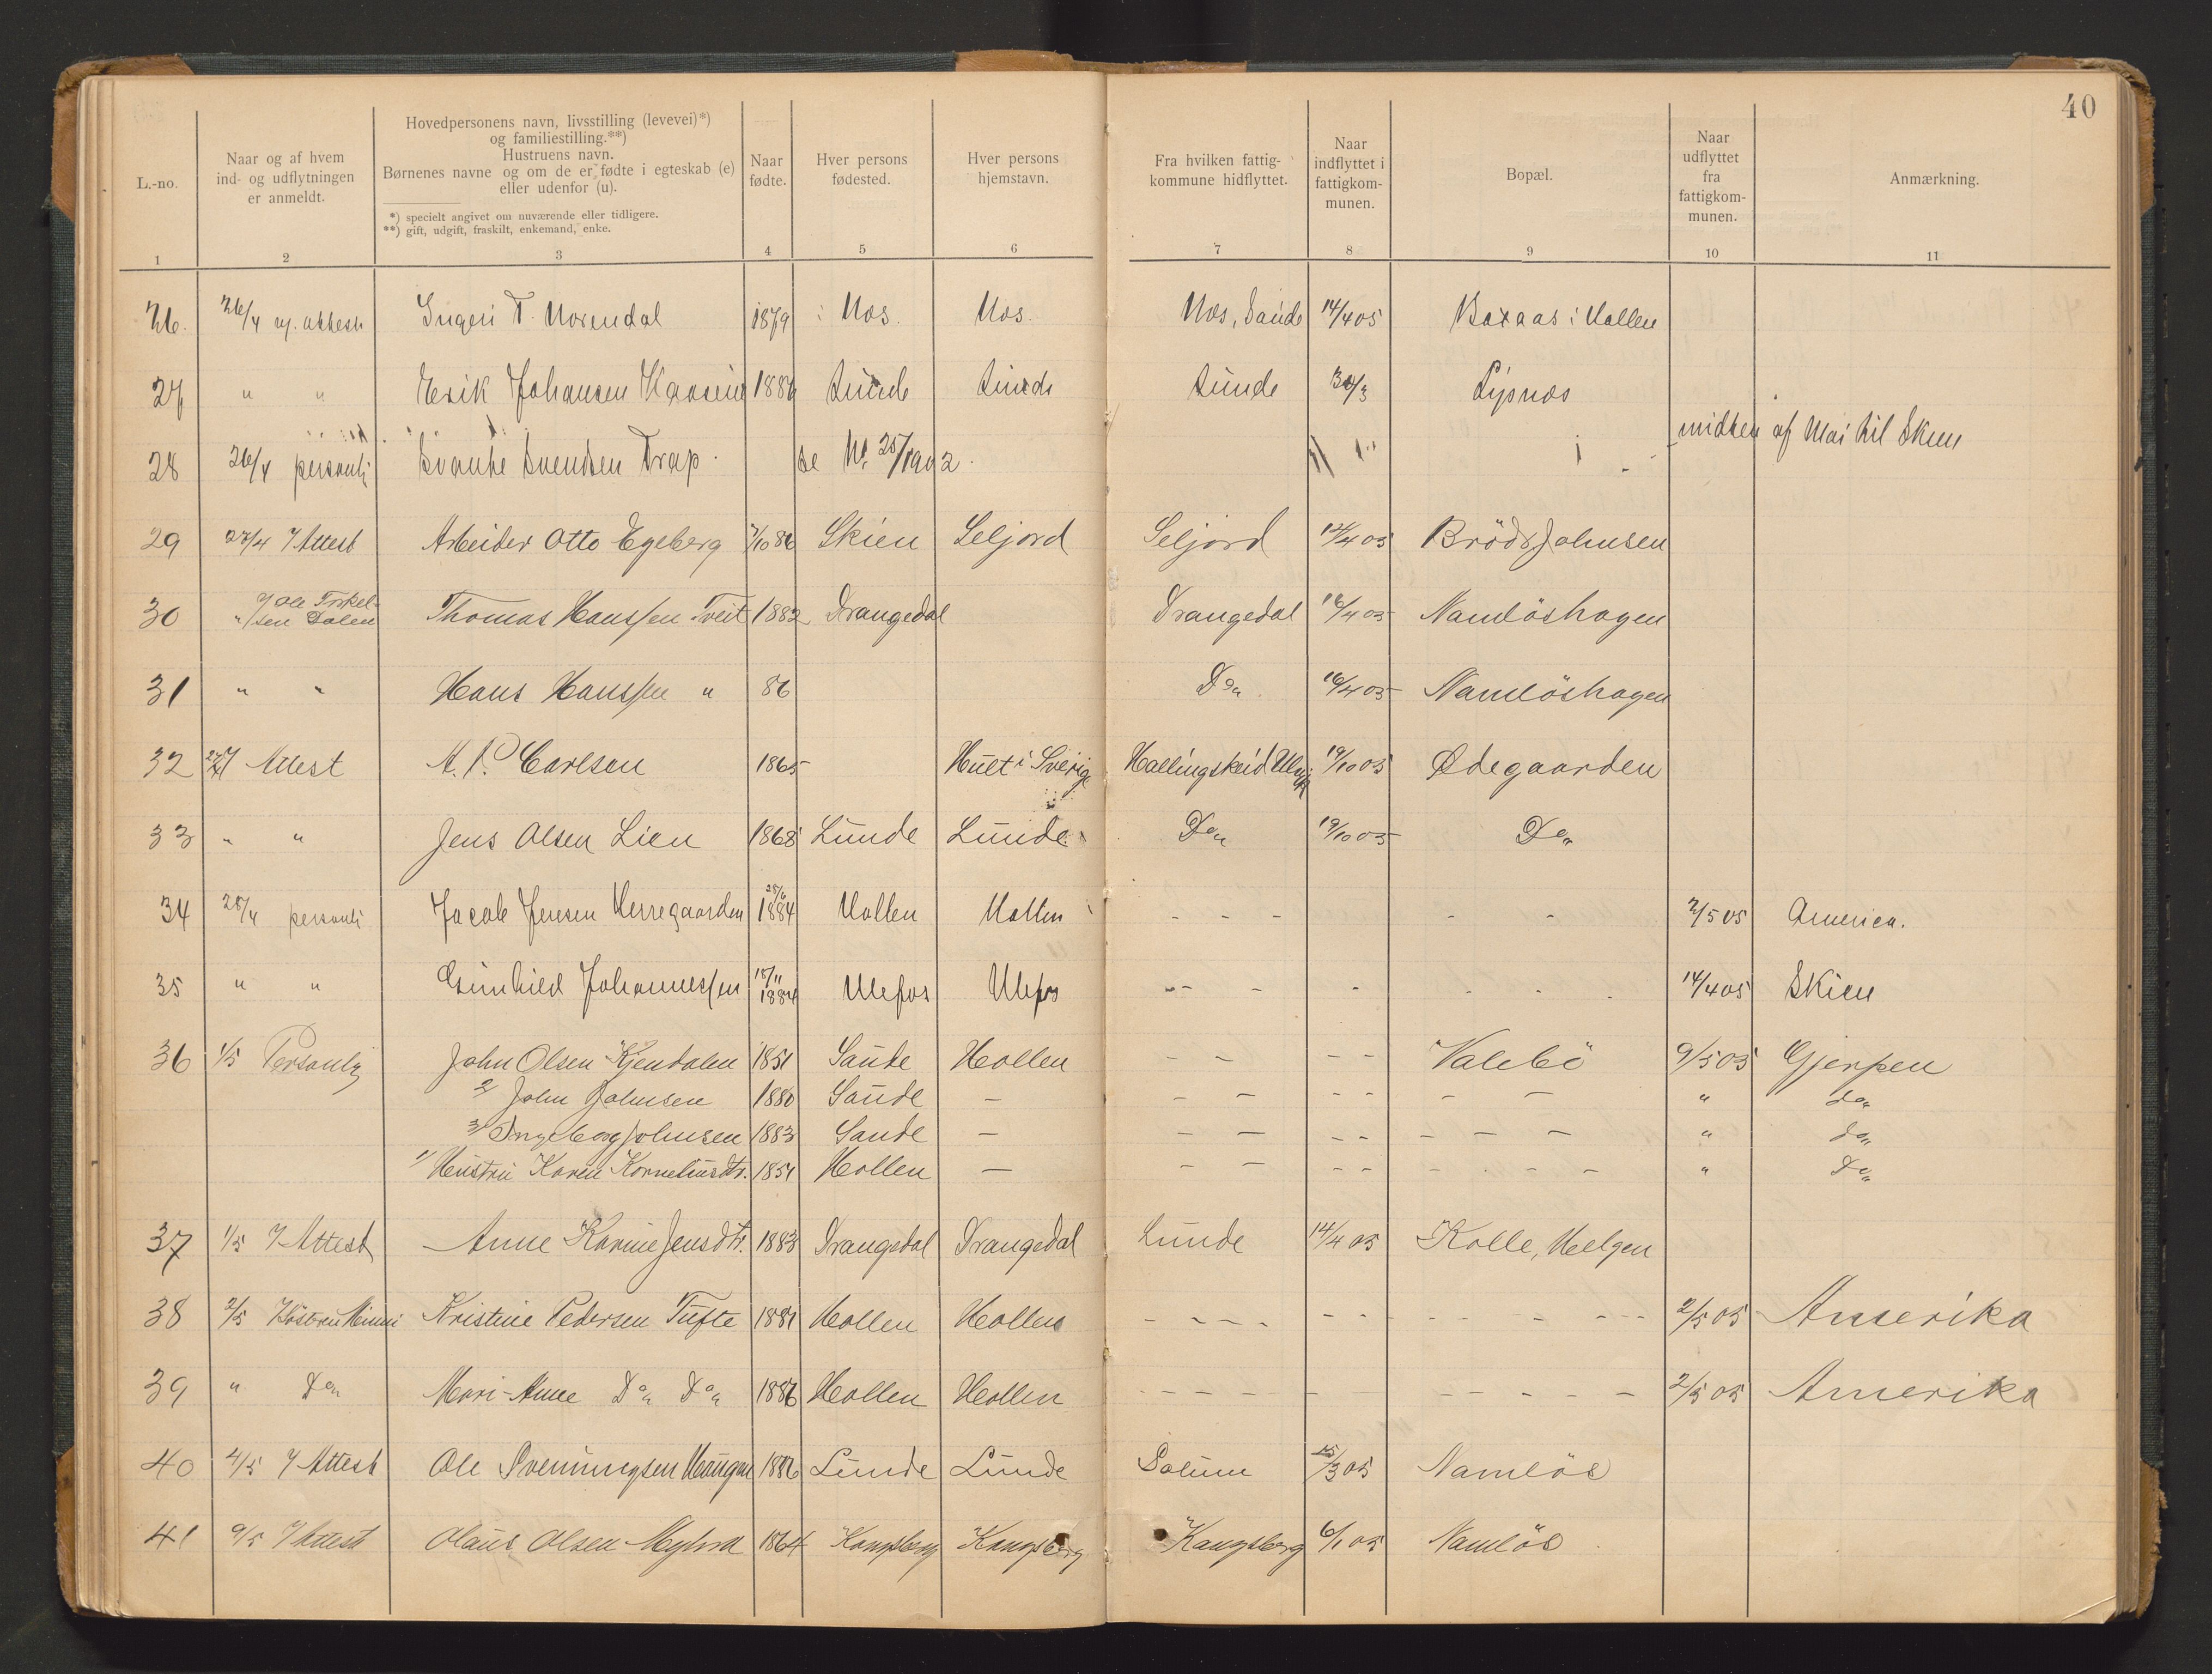 40
L.-no.
Naar og af hvem ind- og udflytningen er anmeldt.
Hovedpersonens navn, livsstilling (levevei)*) og familiestilling.**) Hustruens navn. Børnenes navne og om de er fødte i egteskab (e) eller udenfor (u).
*) specielt angivet om nuværende eller tidligere.
**) gift, udgift, fraskilt, enkemand, enke.
Naar fødte.
Hver persons fødested.
Hver persons hjemstavn.
Fra hvilken fattigkommune hidflyttet.
Naar indflyttet i fattigkommunen.
Bopæl.
Naar udflyttet fra fattigkommunen.
Anmærkning.
1 2 3 4 5 6 7 8 9 10 11
26. 26/4 Ingeri T. 1879 14/4 05
27 " " Erik Johansen Lunde Lunde Lunde
28 26/4 personli Svendsen Trap. se No 25/1902. midten af Mai til Skien
29 27/4 7 Attest Arbeider Otto Egeberg 7/10 86 Skien Seljord Seljord Johnsen
30 " 7 Ole Torkelsen Dalen Thomas Hanssen Tveit 1882 Drangedal Drangedal 16/4 05 Namløshagen
31 " " Hans Hanssen " 86 Do 16/4 05 Namløshagen
32 27/4 7 Attest Carlsen 1865 Hult i Sverige Hallingskeid Ulvik 19/10 05 Ødegaarden
33 " " Jens Olsen Lien 1868 Lunde Lunde Do 19/10 05 Do
34 28/4 personli Jacob Jensen Herregaarden 1884 Hollen Hollen - - - - - 2/5 05 America.
35 " " Gunhild Johannessen 18/11 1884 Ulefos Ulefos - - - - - 14/4 05 Skien
36 1/5 Personlig John Olsen Kjendalen 1851 Saude Hollen - - - - Valebö 9/5 05 Gjerpen
2) John Johnsen 1880 Saude — - - - - - - " do
3) Ingeborg Johnsen 1883 Saude — - - - - - - - " do
1) Hustru Karen Korneliusdtr. 1851 Hollen — - - - - - - - - " do
37 1/5 7 Attest Anne Karine Jensdtr. 1883 Drangedal Drangedal Lunde 14/4 05 Kolle, Helgen
38 2/5 Kristine Pedersen Tufte 1881 Hollen Hollen - - - - - - - - 2/5 05 Amerika
39 " Do Mari-Anne Do Do 1886 Hollen Hollen - - - - - - - - 2/5 05 Amerika
40 4/5 7 Attest Ole Sveinungsen Haugen 1886 Lunde Lunde Solum 15/3 05 Namløs
41 9/5 7 Attest Olaus Olsen Myhra 1864 Kongsberg Kongsberg Kongsberg 6/1 05 Namløs